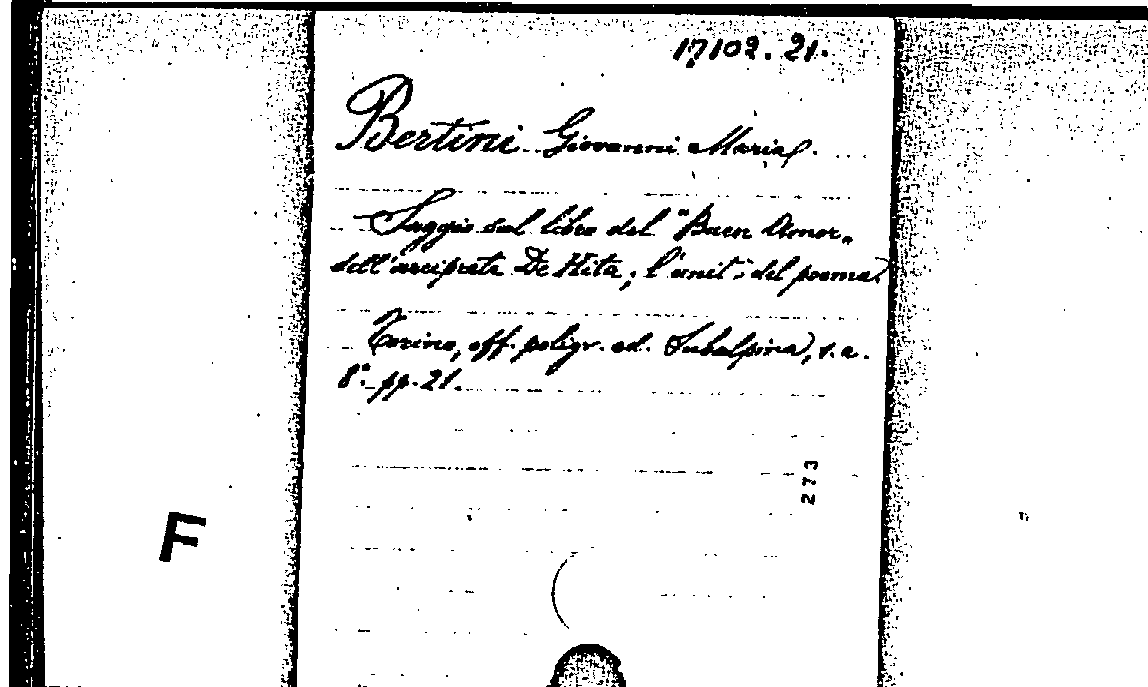 17102. 21.
Bertini Giovanni Maria.
Saggio sul libro del "Buen Amor„
dell'arciprete De Hita; l'unità del poema.
Torino, off. poligr. ed. Subalpina, s.a.
8º pp. 21.
273
F